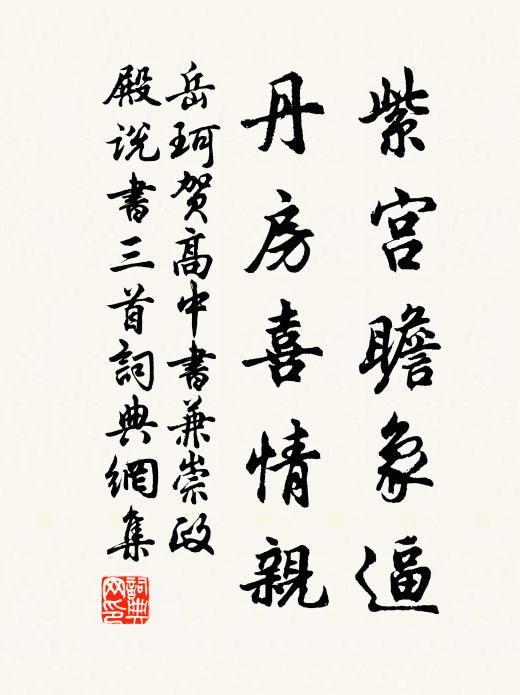 紫宫瞻象逼
丹房喜情親
岳珂贺高中書兼崇政
殿说書三首詞典網集
詞典網印